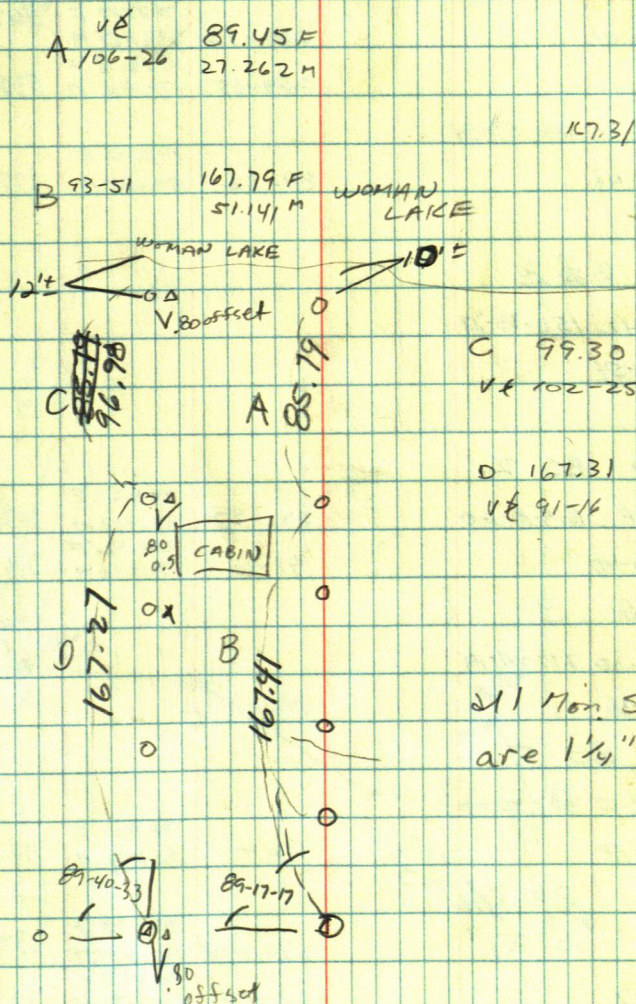 A V∡ 89.45 F
106-26 27.262 M
167.31
B 93-51 167.79 F
51.141 M
WOMAN LAKE
WOMAN LAKE
10'±
12'±
V .80 offset
C 96.98
A 85.79
C 99.30
V∡ 102-25
D 167.31
V∡ 91-16
80
0.5
CABIN
D 167.27
B 167.41
All Mon. S
are 1¼"
89-40-33
89-17-17
V .80
offset